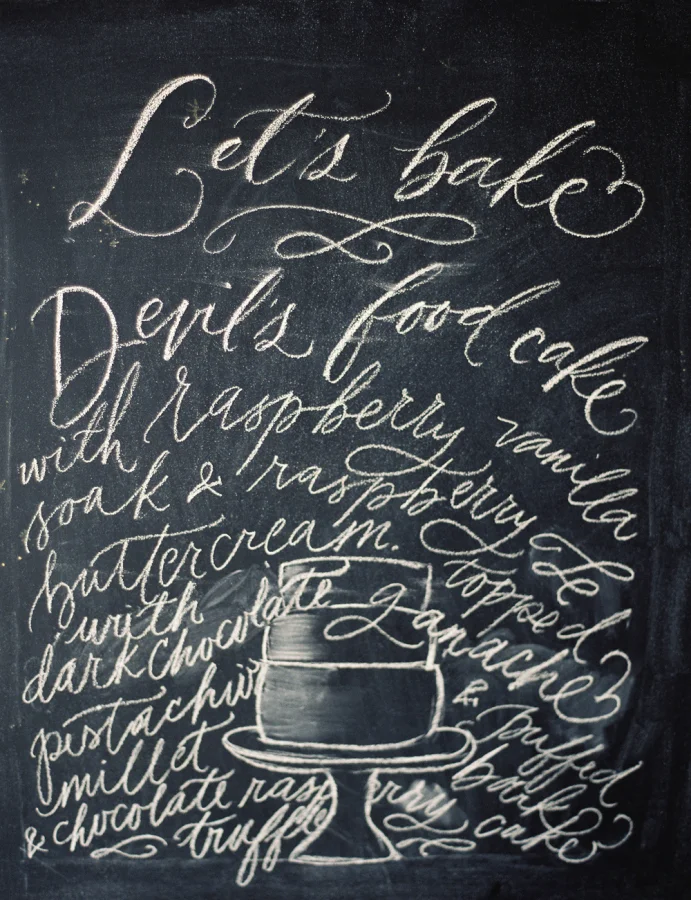 Let's bake
Devil's food cake
with raspberry vanilla
soak & raspberry
buttercream. topped
with
dark chocolate ganache
pistachio & puffed
millet
& chocolate raspberry
truffle bark cake